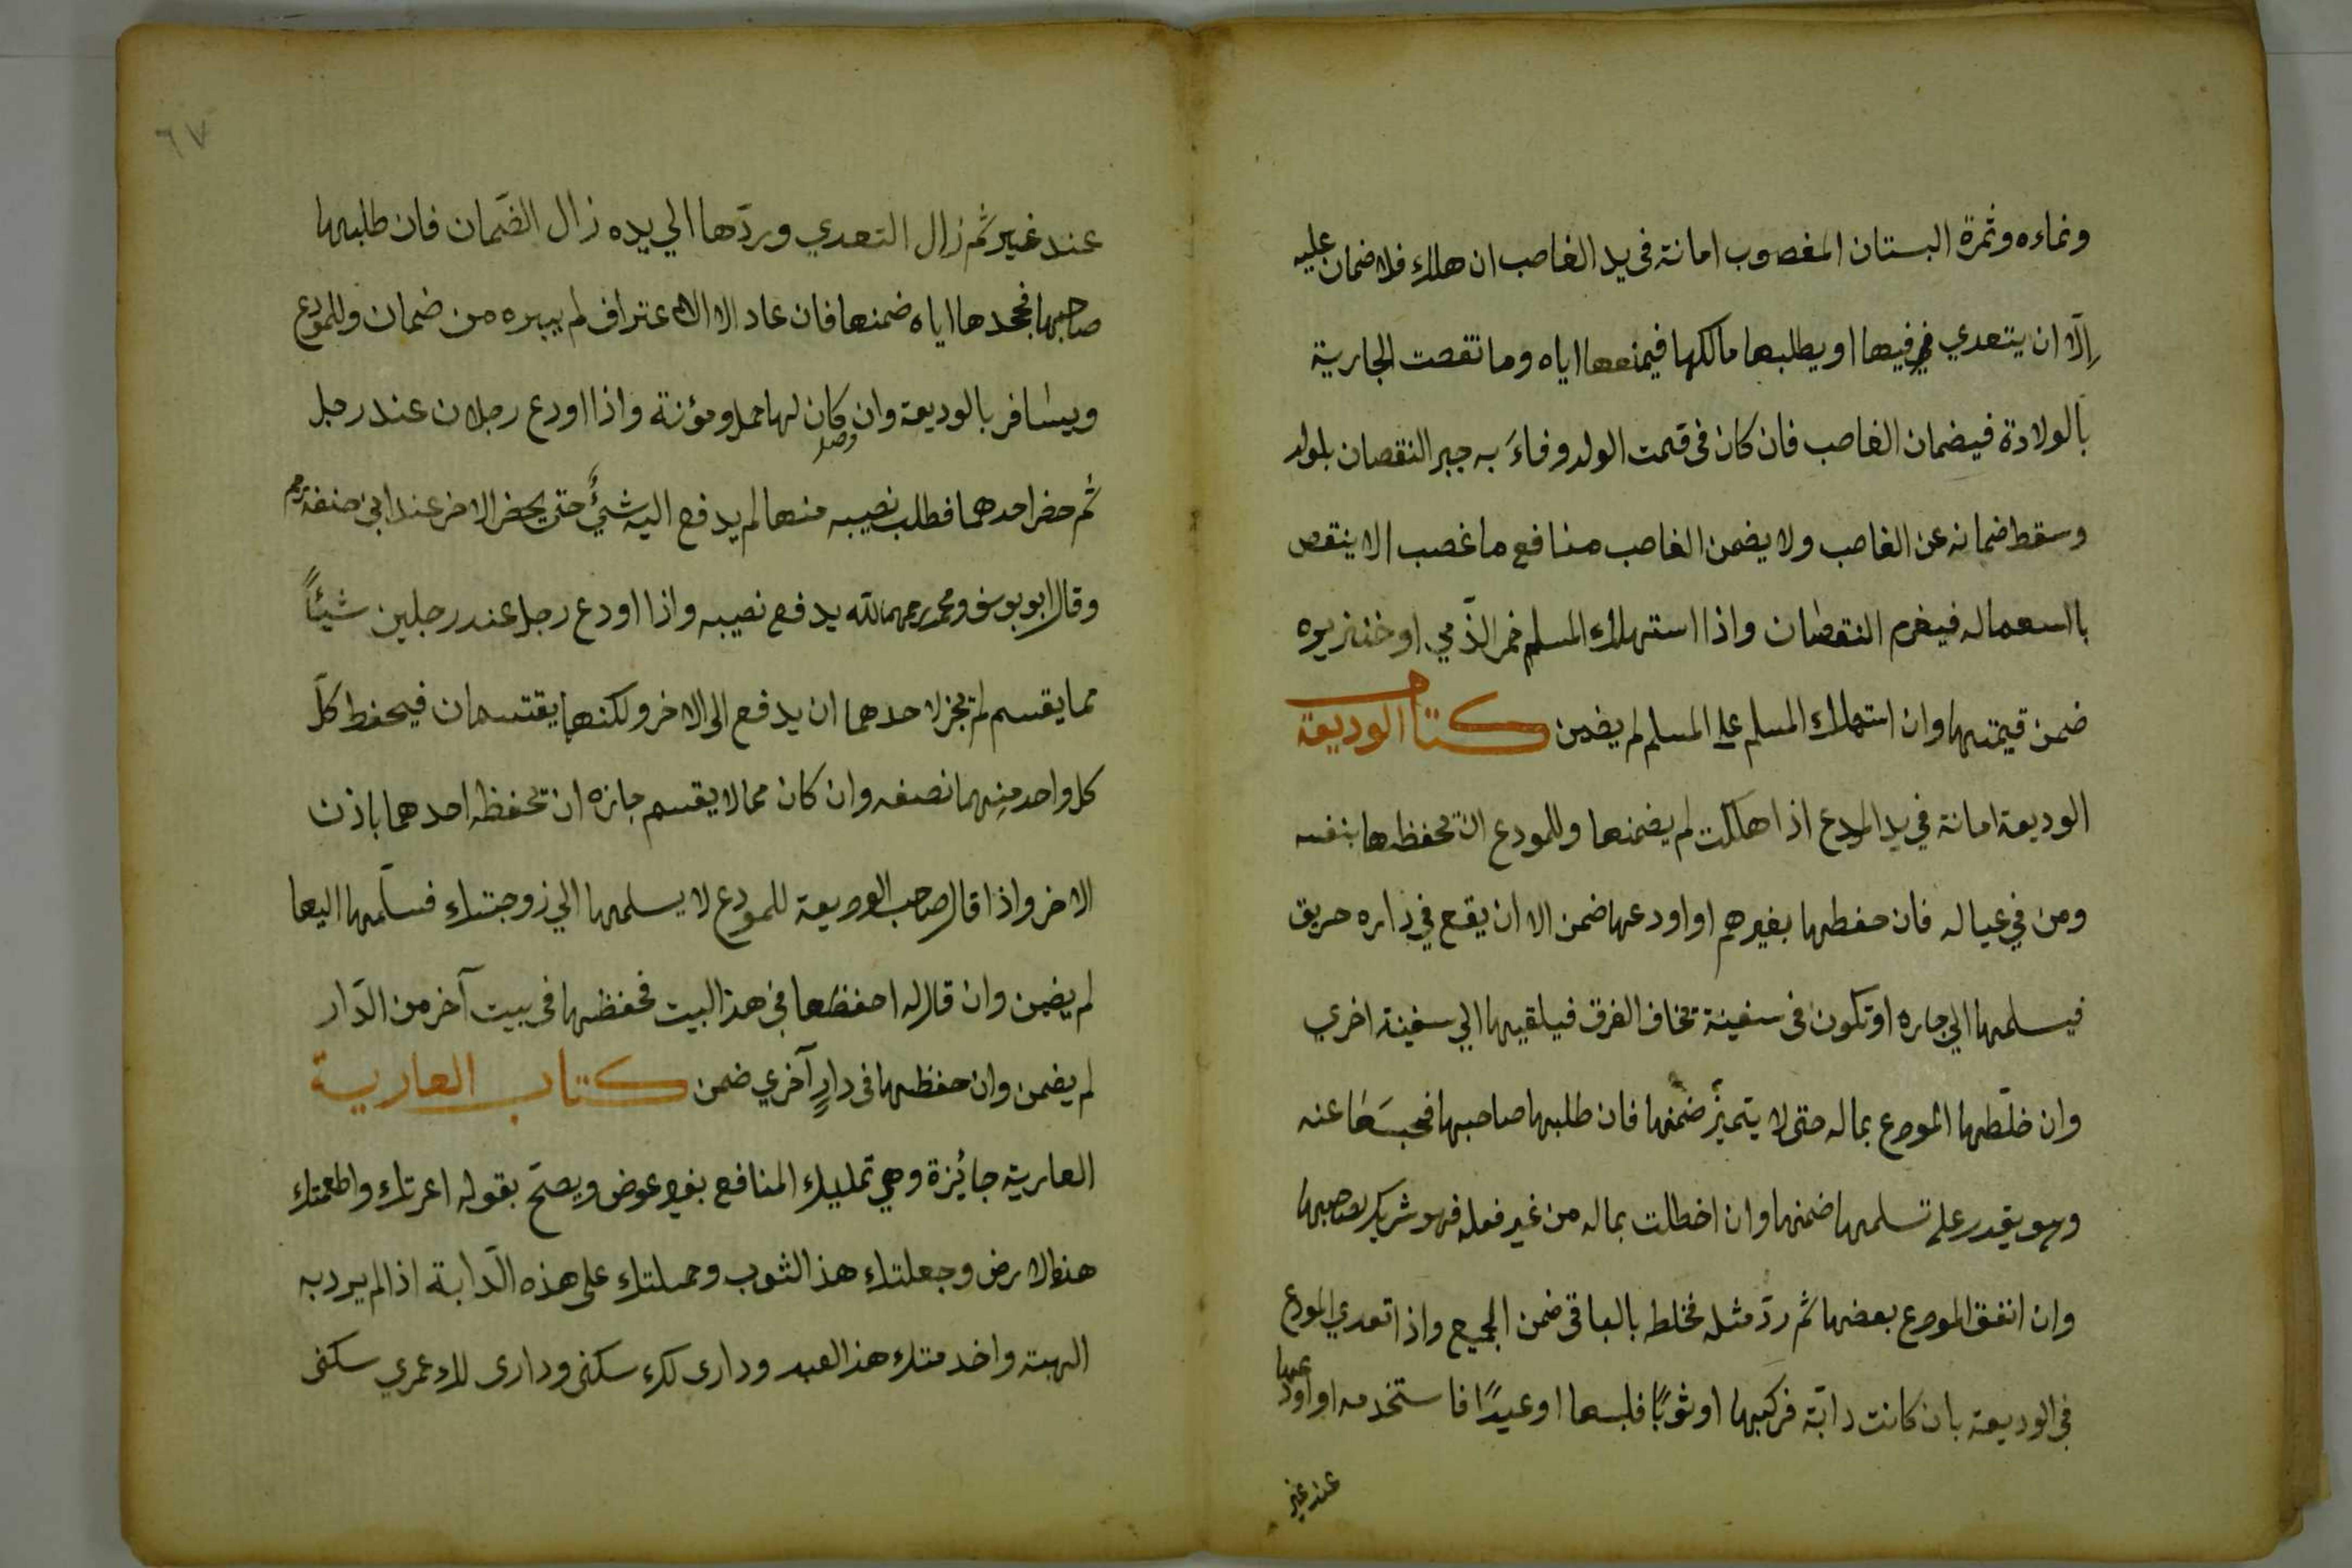 ونماءه وثمرة البستان المغصوب امانة فى يد الغاصب ان هلك فلا ضمان عليه
إلّا ان يتعدي فيها او يطلبها مالكها فيمنعها اياه وما نقصت الجارية
بالولادة فيضمان الغاصب فان كان فى قيمت الولد وفاءَ به جبر النقصان بلولد
وسقط ضمانه عن الغاصب ولا يضمن الغاصب منافع ما غصب الا ينقص
بااسعماله فيغرم النقصان واذا استهلك المسلم خمر الذّمي او خنزيره
ضمن قيمتهما وان استهلك المسلم على المسلم لم يضمن كتاب الوديعة
الوديعة امانة في يد المودع اذا هلكت لم يضمنها وللمودع ان يحفظها بنفسه
ومن في عياله فان حفظها بغيرهم او اودعها ضمن الا ان يقع في داره حريق
فيسلمها الي جاره او تكون فى سفينة تخاف الغرق فيلقيها الي سفينة اخري
وان خلّطها المودع بماله حتى لا يتميّز ضمنها فان طلبها صاحبها فحبسَها عنه
وهو يقدر على تسلمها ضمنها وان اختطلت بماله من غير فعله فهو شريك لصاحبها
وان انفق المودع بعضها ثم ردّ مثله فخلط بالباقى ضمن الجميع واذا تعدي المودع
في الوديعة بان كانت دابّة فركبها او ثوبًا فلبسها او عبدًا فاستخدمه او اودعها
عند غير
٦٧
عند غير ثم زال التعدي وردّها الي يده زال الضّمان فان طلبها
صاحبها فجحدها اياه ضمنها فان عاد الا الاعتراف لم يبره من ضمان وللمودع
ويسافر بالوديعة وان كان لها حمل ومؤنة واذا اودع رجلان عند رجل
ثم حضر احدهما فطلب نصيبه منها لم يدفع اليه شئٌ حتى يحضر الاخر عند ابى حنفة رحم
وقال ابو يوسف ومحمد رحمهما الله يدفع نصيبه واذا اودع رجل عند رجلين شيئاً
مما يقسم لم يجز لاحدهما ان يدفع الى الاخر ولكنهما يقتسمان فيحفط كلّ
كل واحد منهما نصفه وان كان مما لا يقسم جازه ان تحفظه احدهما باذن
الاخر واذا قال صاحب الوديعة للمودع لا يسلمها الي زوجتك فسلّمها اليها
لم يضمن وان قال له احفظها في هذا البيت فحفظها فى بيت آخر من الدّار
لم يضمن وان حفظها فى دارٍ آخري ضمن كتاب العارية
العارية جائزة وهي تمليك المنافع بغير عوض ويصحّ بقوله اعرتك واطعمتك
هذه الارض وجعلتك هذا الثوب وحملتك على هذه الدّابة اذا لم يرد به
الهبة واخدمتك هذا العبد ودارى لك سكنى ودارى لك عمري سكنى